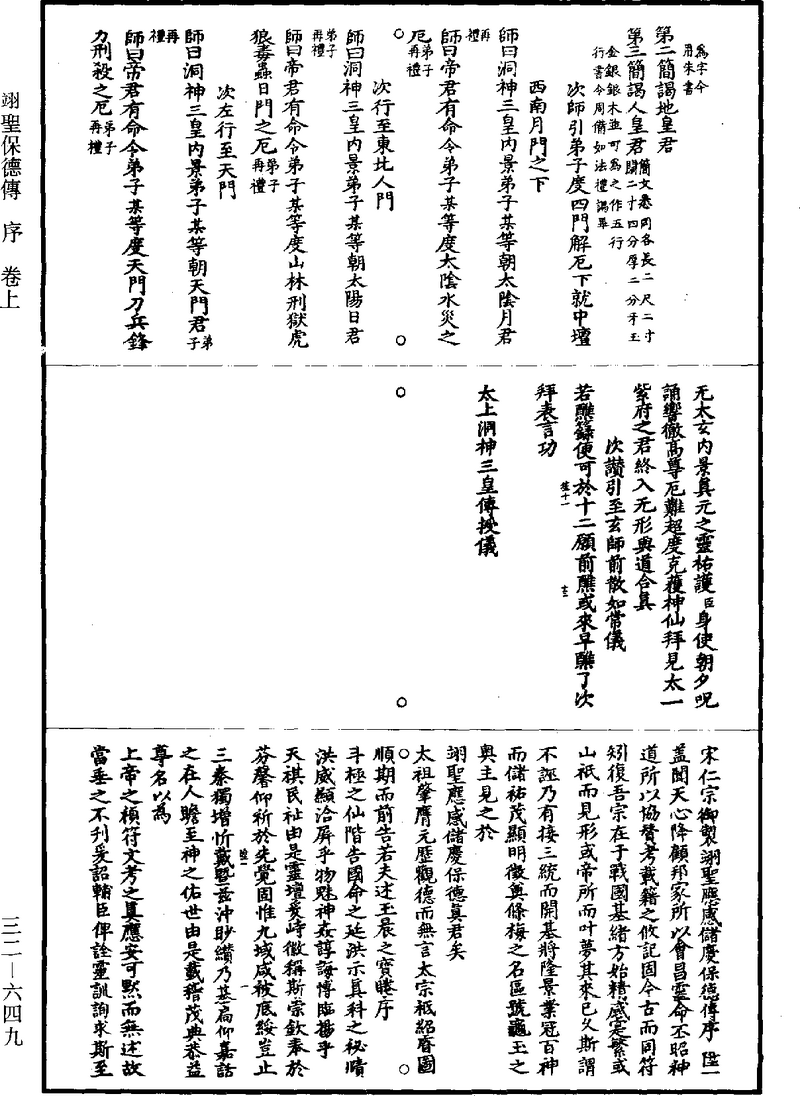 為字令
用朱書
第二簡謁地皇君
第三簡謁人皇君簡文悉同各長二尺二寸
闊二寸四分厚二分牙玉
金銀銀木並可為之作五行
行書令周備如法禮謁畢
次師引弟子度四門解厄下就中壇
西南月門之下
師曰洞神三皇內景弟子某等朝太陰月君
再禮
師曰帝君有命令弟子某等度太陰水災之
厄弟子再禮
次行至東北人門
師曰洞神三皇內景弟子某等朝太陽日君
弟子再禮
師曰帝君有命令弟子某等度山林刑獄虎
狼毒蟲日門之厄弟子再禮
次左行至天門
師曰洞神三皇內景弟子某等朝天門君弟子
再禮
師曰帝君有命令弟子某等度天門刀兵鋒
刃刑殺之厄弟子再禮
无太玄內景真元之靈祐護臣身使朝夕呪
誦響徹高尊厄難超度克獲神仙拜見太一
紫府之君終入无形與道合真
次讚引至玄師前散如常儀
若醮籙便可於十二願前醮或來早醮了次
拜表言功
太上洞神三皇傳授儀
宋仁宗御製翊聖應感儲慶保德傳序
蓋聞天心降顧邦家所以會昌靈命丕昭神
道所以協贊考載籍之攸記固今古而同符
矧復吾宗在于戰國基緒方始精感寔繁或
山祇而見形或帝所而叶夢其來已久斯謂
不誣乃有接三統而開基將隆景業冠百神
而儲祐茂顯明徵奠條梅之名區號龜玉之
奧主見之於
翊聖應感儲慶保德真君矣
太祖肇膺元歷觀德而無言太宗祗紹睿圖
順期而前告若夫述王晨之寶勝序
斗極之仙階告國命之延洪示真科之秘賾
洪威顯洽屏乎物魅神姦諄誨博臨揚乎
天祺民祉由是靈壇爰峙徽稱斯崇欽奉於
芬馨仰祈於先覺固惟九域咸被底綏豈止
三秦獨增忻戴暨茲沖眇纘乃基扃仰嘉話
之在人瞻至神之佑世由是載稽茂典恭益
尊名以為
上帝之楨符文考之真應安可默而無述故
當垂之不刊爰詔輔臣俾詮靈訓詢求斯至
翊聖保德傳 序 卷上
三二—六四九